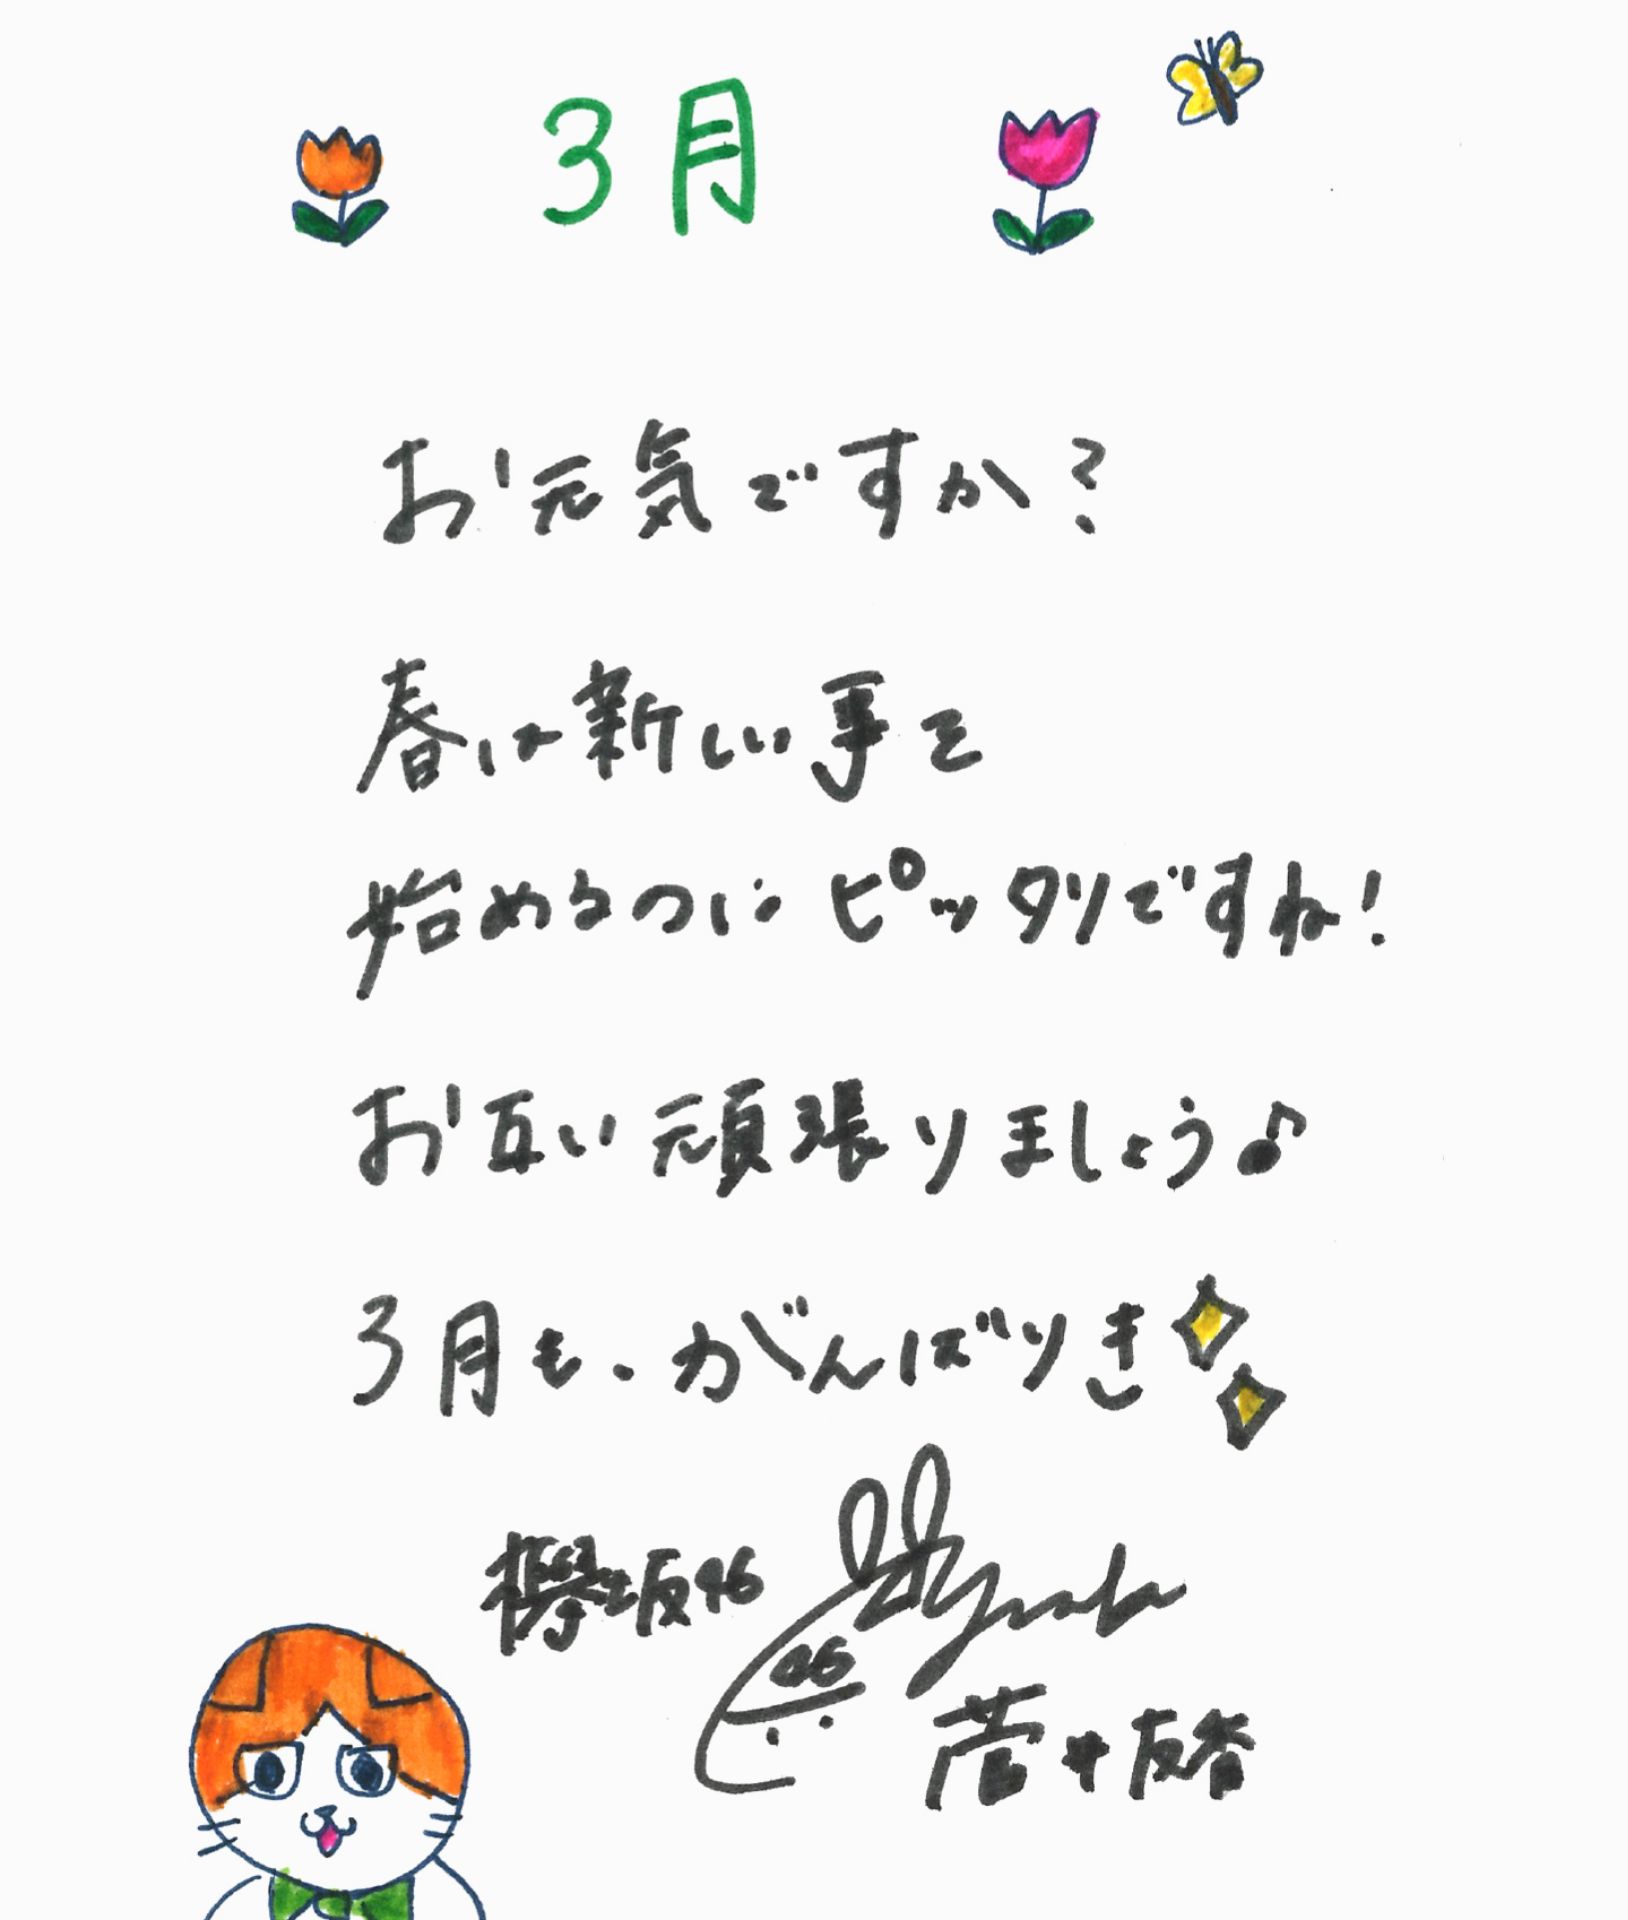 3月
お元気ですか?
春は新しい事を
始めるのにピッタリですね!
お互い頑張りましょう♪
3月も、がんばりき
欅坂46
46
菅井友香